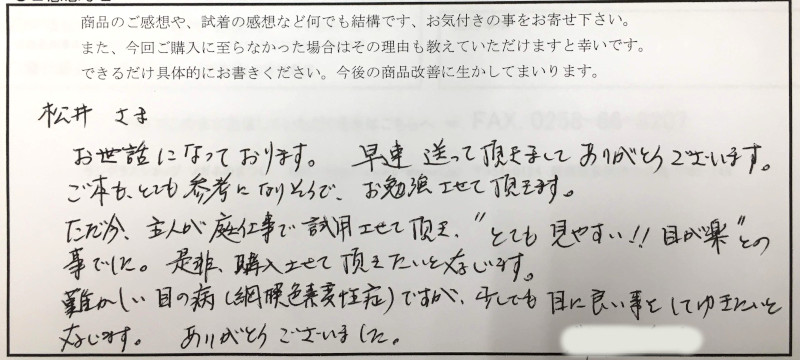 商品のご感想や、試着の感想など何でも結構です、お気付きの事をお寄せ下さい。
また、今回ご購入に至らなかった場合はその理由も教えていただけますと幸いです。
できるだけ具体的にお書きください。今後の商品改善に生かしてまいります。
松井 さま
お世話になっております。 早速 送って頂きまして ありがとうございます。
ご本も、とても参考になりそうで、お勉強させて頂きます。
ただ今、主人が庭仕事で試用させて頂き、"とても見やすい!! 目が楽"との
事でした。是非、購入させて頂きたいと存じます。
難かしい目の病(網膜色素変性症)ですが、少しでも目に良い事をしてゆきたいと
存じます。 ありがとうございました。